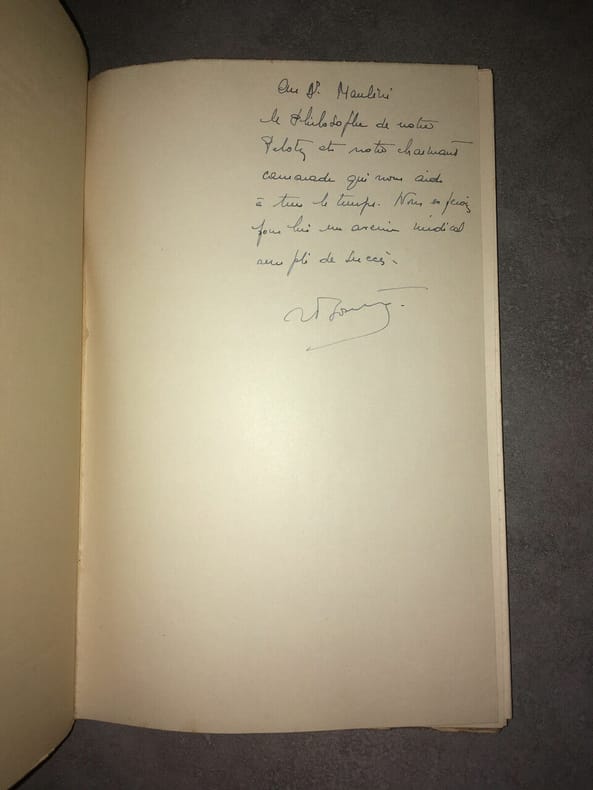 Au Dr. Maulini
le Philosophe de notre
et notre charmant
camarade qui nous aide
à tuer le temps. Nous
pour lui un avenir médical
rempli de succès.